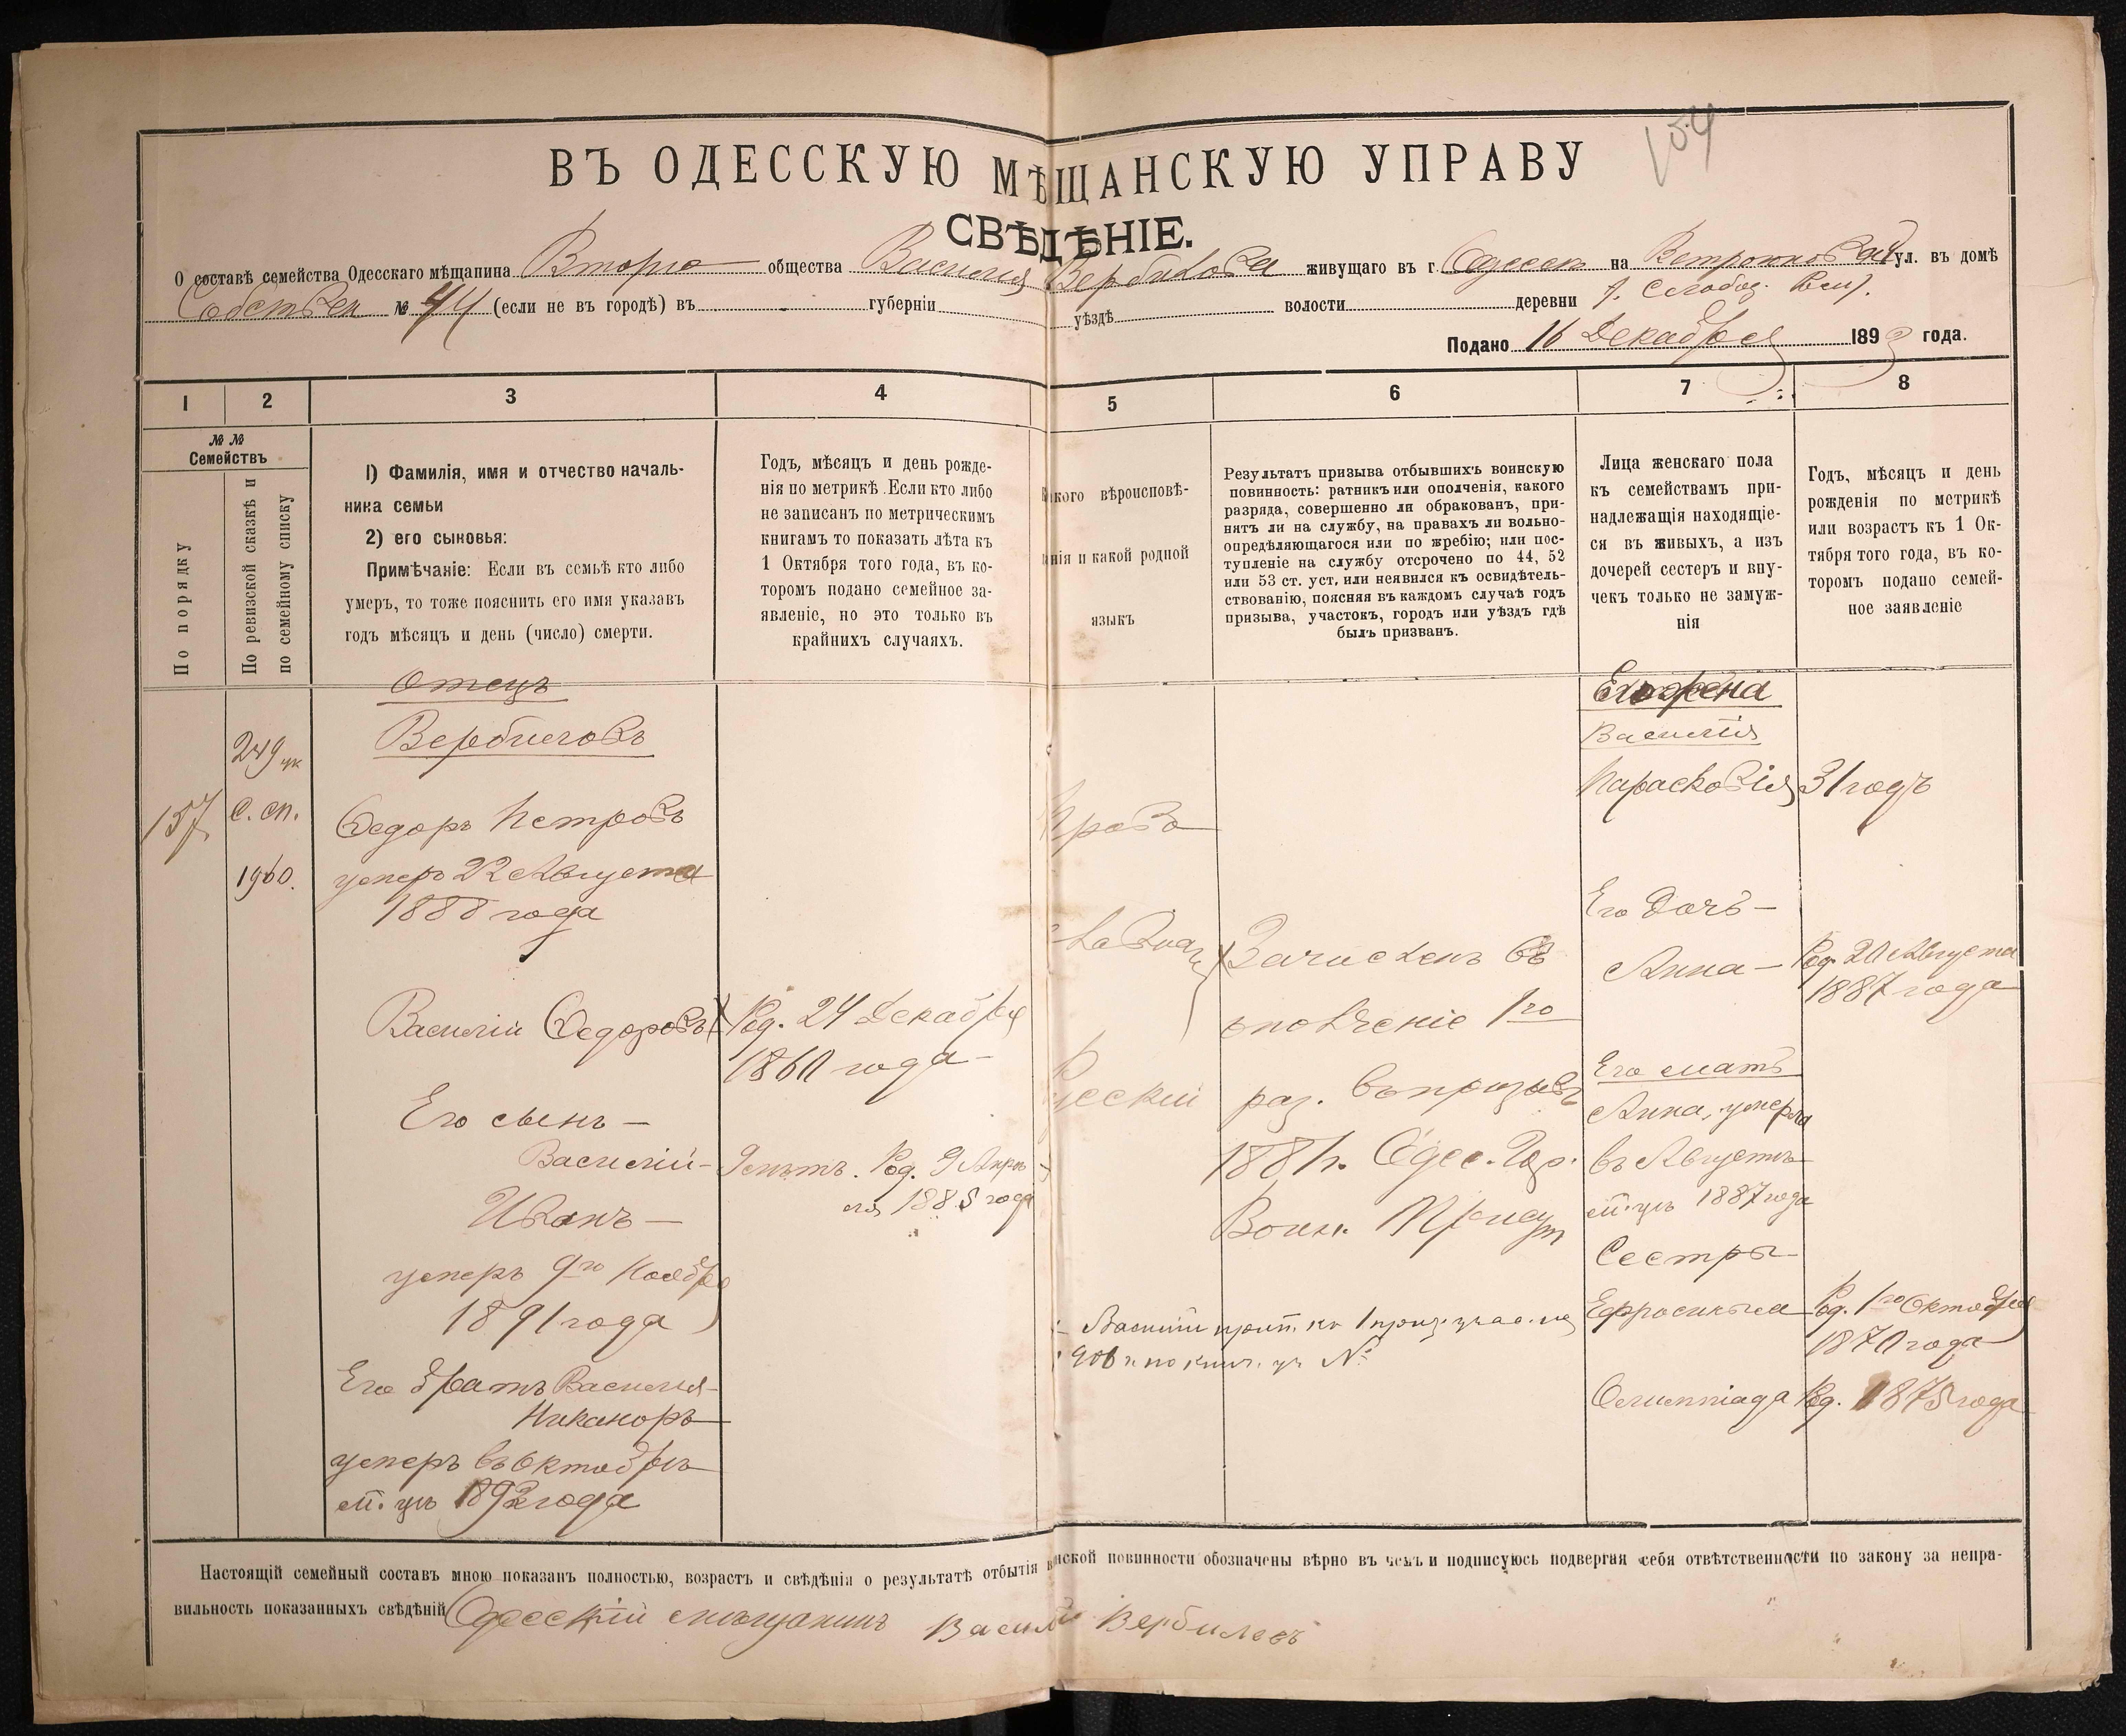 ВЪ ОДЕССКУЮ МѢЩАНСКУЮ УПРАВУ
СВѢДѢНІЕ.
О составѣ семейства Одесскаго мѣщанина Второго общества Василія Вербилова живущаго въ г. Одессѣ на ул. въ домѣ
Собствен № 44 (если не въ городѣ) въ губерніи уѣздѣ волости деревни
Подано 16 Декабря 189 года.
1 2 3 4 5 6 7 8
№ №
Семействъ
По порядку
По ревизской сказкѣ и
по семейному списку
1) Фамилія, имя и отчество началь-
ника семьи
2) его сыновья:
Примѣчаніе: Если въ семьѣ кто либо
умеръ, то тоже пояснить его имя указавъ
годъ мѣсяцъ и день (число) смерти.
Годъ, мѣсяцъ и день рожде-
нія по метрикѣ. Если кто либо
не записанъ по метрическимъ
книгамъ то показать лѣта къ
1 Октября того года, въ ко-
торомъ подано семейное за-
явленіе, но это только въ
крайнихъ случаяхъ.
Какого вѣроисповѣ-
нія и какой родной
языкъ
Результатъ призыва отбывшихъ воинскую
повинность: ратникъ или ополченія, какого
разряда, совершенно ли обракованъ, при-
нятъ ли на службу, на правахъ ли вольно-
опредѣляющагося или по жребію; или пос-
тупленіе на службу отсрочено по 44, 52
или 53 ст. уст. или неявился къ освидѣтель-
ствованію, поясняя въ каждомъ случаѣ годъ
призыва, участокъ, городъ или уѣздъ гдѣ
былъ призванъ.
Лица женскаго пола
къ семействамъ при-
надлежащія находящіе-
ся въ живыхъ, а изъ
дочерей сестеръ и вну-
чекъ только не замуж-
нія
Годъ, мѣсяцъ и день
рожденія по метрикѣ
или возрастъ къ 1 Ок-
тября того года, въ ко-
торомъ подано семей-
ное заявленіе
157
249
с. сп.
1960.
Отецъ
Вербиловъ
Федоръ Петровъ
умеръ 22 Августа
1888 года
Василій Федоровъ
Его сынъ —
Василій —
Иванъ —
умеръ 9го Ноября
1891 года
Его братъ Василія —
Никаноръ
умеръ въ Октябрѣ
м-цѣ 1892 года
Род. 24 Декабря
1860 года —
9 лѣтъ. Род. 9 Апрѣ-
ля 1885 года
Право
славнаго
Русскій
Зачисленъ въ
ополченіе 1го
раз. въ призывъ
1881 г. Одес. Гор.
Воин. Присут
Его жена
Василія
Парасковія 31 годъ
Его дочь —
Анна — Род. 20 Августа
1887 года
Его мать
Анна, умерла
въ Августѣ
м-цѣ 1887 года
Сестры —
Ефросинья Род. 1го Октября
1870 года
Олимпіада Род. 1875 года
Настоящій семейный составъ мною показанъ полностью, возрастъ и свѣдѣнія о результатѣ отбытія воинской повинности обозначены вѣрно въ чемъ и подписуюсь подвергая себя отвѣтственности по закону за непра-
вильность показанныхъ свѣдѣній Одесскій мѣщанинъ Василій Вербиловъ